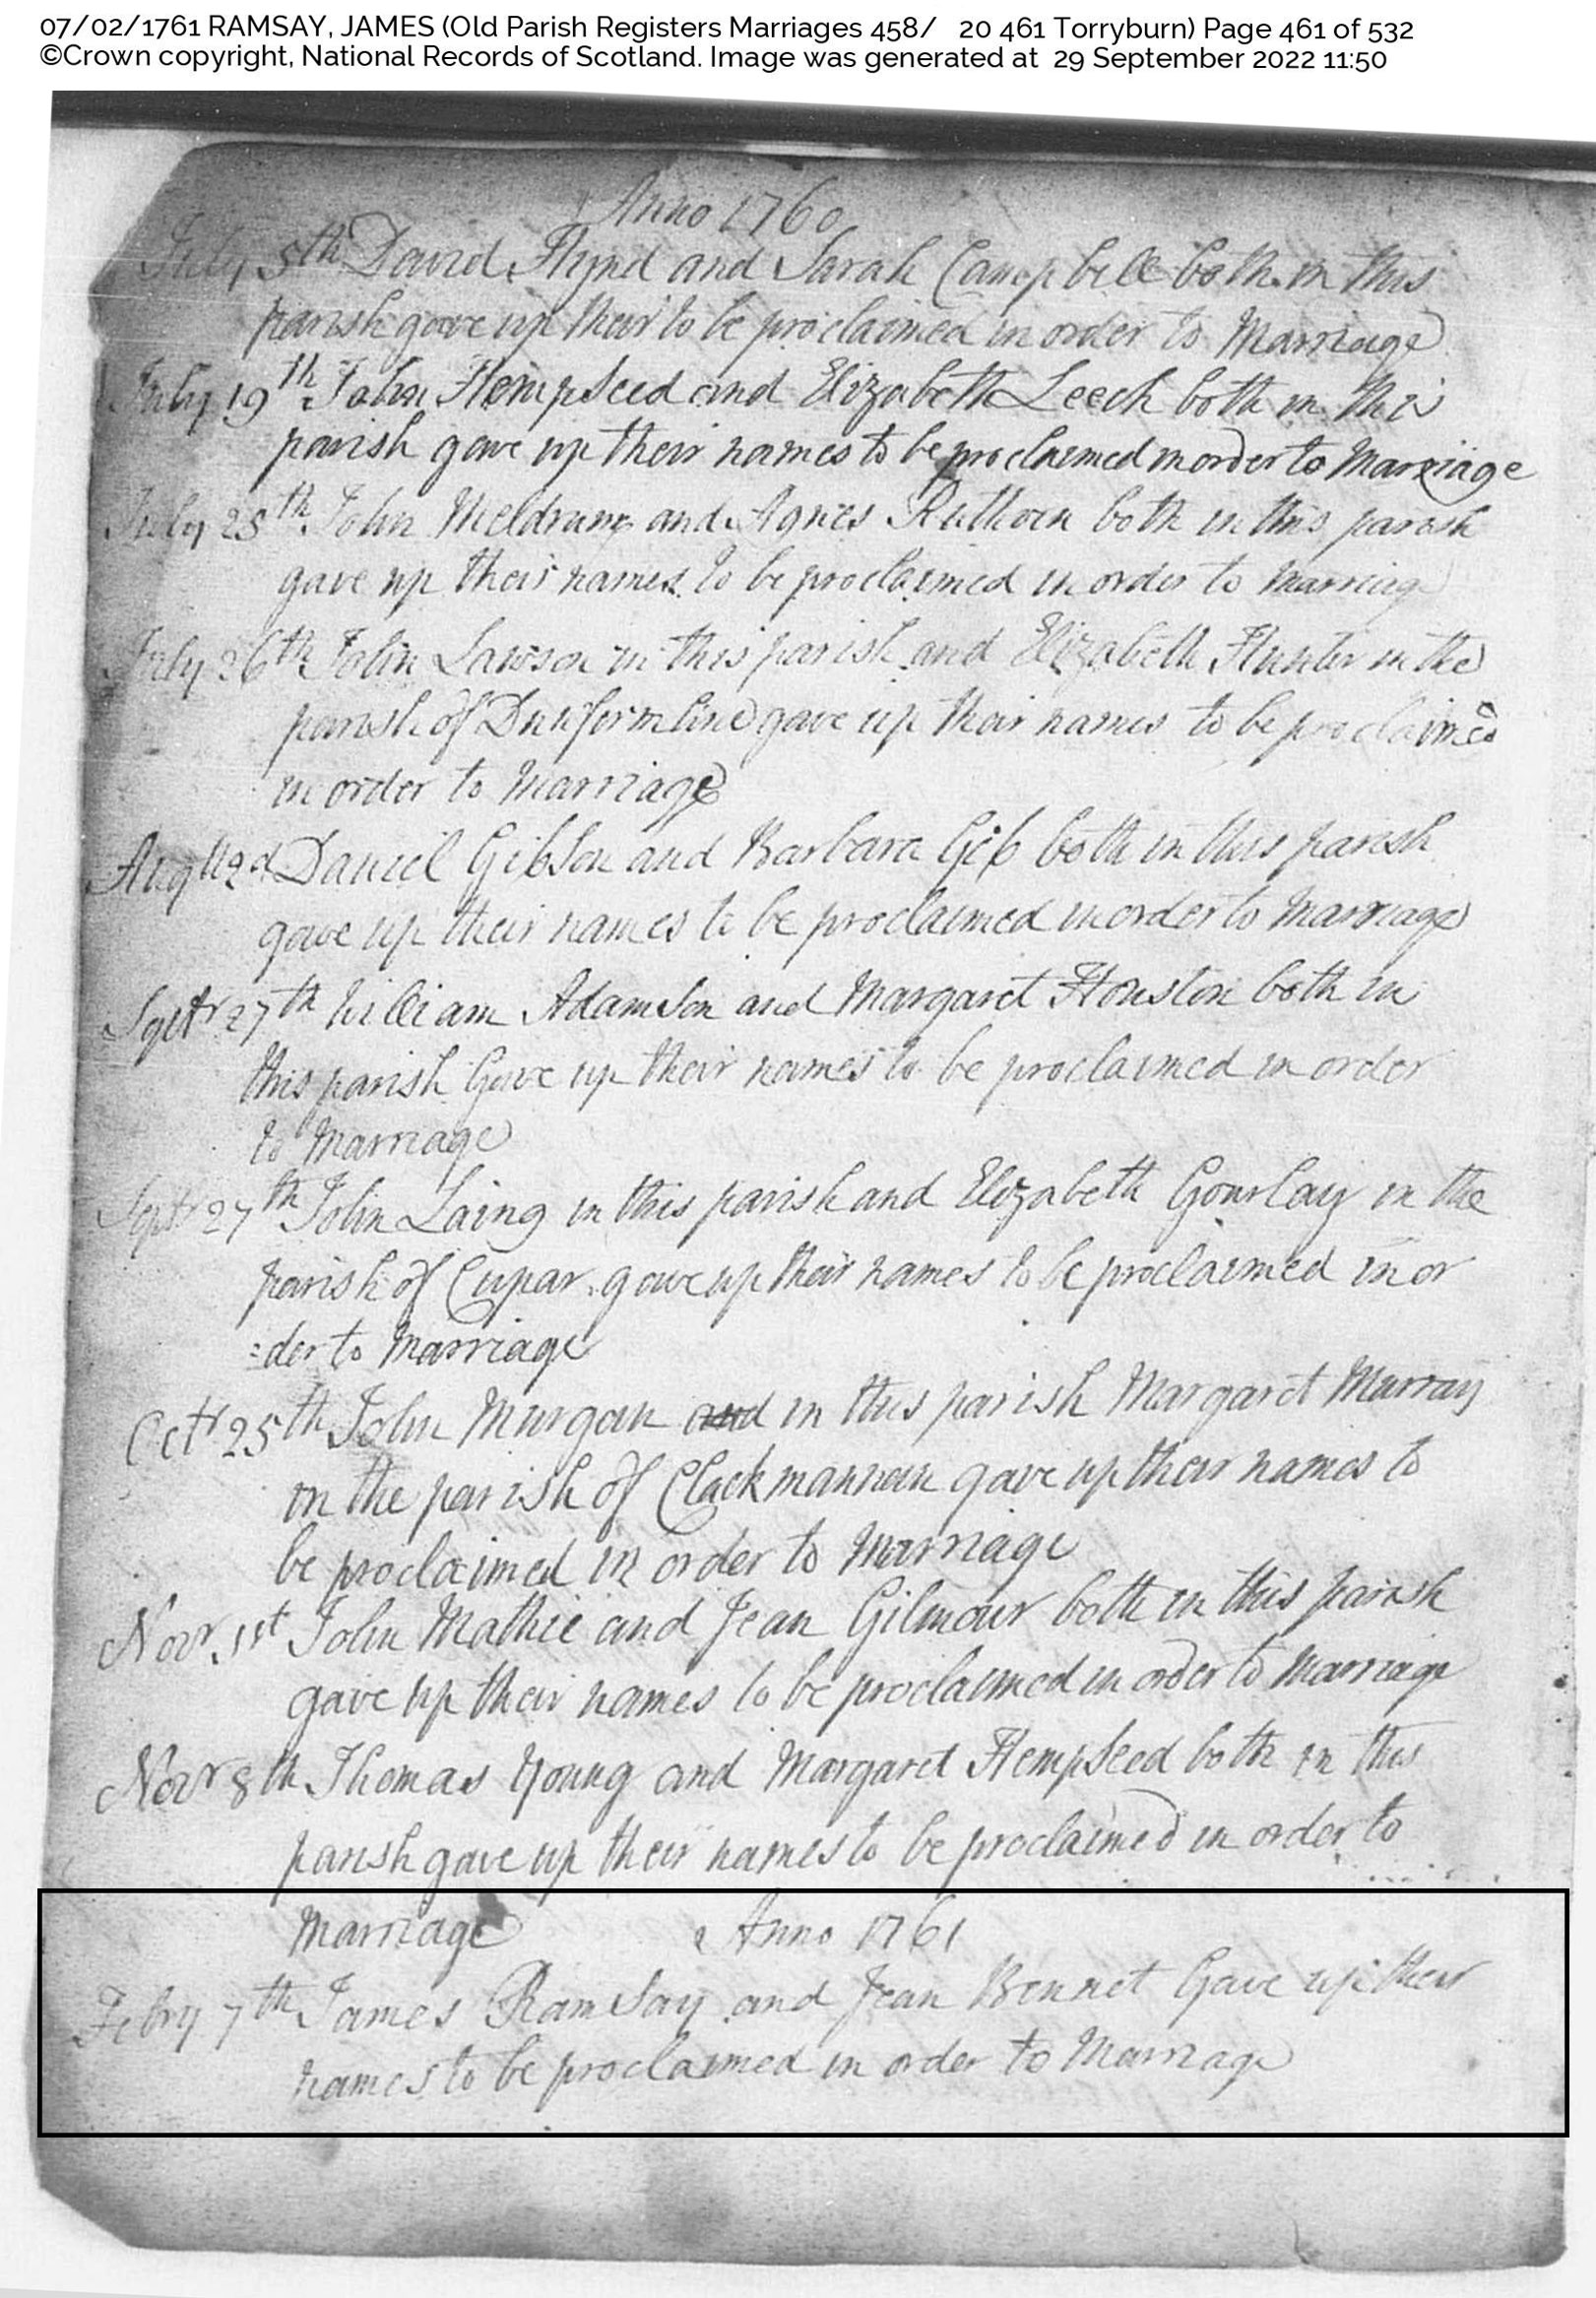 07/02/1761 RAMSAY, JAMES (Old Parish Registers Marriages 458/ 20 461 Torryburn) Page 461 of 532
©Crown copyright, National Records of Scotland. Image was generated at 29 September 2022 11:50
Anno 1760
July 5th David Flynd and Sarah Campbell both in this
parish gave up their to be proclaimed in order to Marriage
July 19th John Hempseed and Elizabeth Leech both in this
parish gave up their names to be proclaimed in order to Marriage
July 25th John Meldrum and Agnes Ruthven both in this parish
gave up their names to be proclaimed in order to Marriage
July 26th John Lawson in this parish and Elizabeth Hunter in the
parish of Dunfermline gave up their names to be proclaimed
in order to Marriage
Augt 2d Daniel Gibson and Barbara Gib both in this parish
gave up their names to be proclaimed in order to Marriage
Septr 27th William Adamson and Margaret Houston both in
this parish Gave up their names to be proclaimed in order
to Marriage
Septr 27th John Laing in this parish and Elizabeth Gourlay in the
parish of Cupar gave up their names to be proclaimed in or
=der to Marriage
Octr 25th John Murgan and in this parish Margaret Murray
in the parish of Clackmannan gave up their names to
be proclaimed in order to Marriage
Novr 1st John Mathie and Jean Gilmour both in this parish
gave up their names to be proclaimed in order to Marriage
Novr 8th Thomas Young and Margaret Hempseed both in this
parish gave up their names to be proclaimed in order to
Marriage Anno 1761
Febry 7th James Ramsay and Jean Bennet Gave up their
names to be proclaimed in order to Marriage